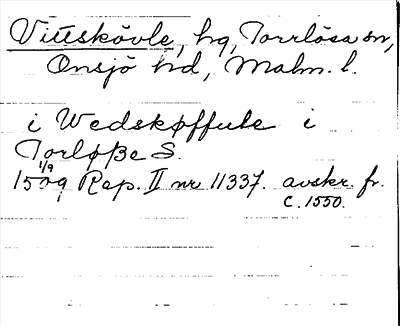 Vittskövle, hg, Torrlösa sn,
Onsjö hd, Malm. l.
i Wedskøffule i
Torløße S.
1/9
1509 Rep. II nr 11337. avskr. fr.
c. 1550.